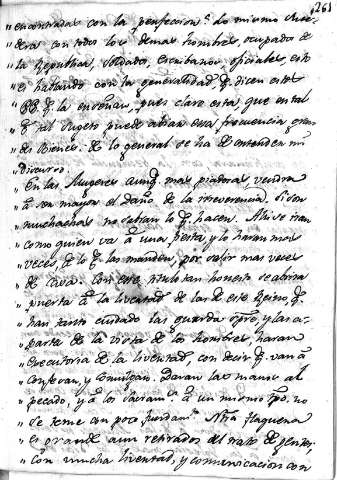 261
"encontradas con la perfeccion. Lo mismo suce-
"dera con todos los demas hombres ocupados de
"la Republica, soldados, escribanos, oficiales, esto
"es hablando con la generalidad q. dicen estos
"PP. q. la enseñan, pues claro esta, que en tal
"q. tal sugeto puede obrar esta frecuencia gran-
"des bienes. De lo general se ha de entender mi
"discurso.
"En las Mugeres aunq. mas piadosas, vendra
"a ser mayor el daño de la irreverencia. Si son
"muchachas no sabran lo q. hacen. Alli se iran
"como quien va a una fiesta, y lo haran mas
"veces, de lo q. les manden, por salir mas veces
"de Casa. Con este titulo tan honesto se abrira
"puerta a la livertad de las de este Reino, q.
"han tanto cuidado las guarda y las a-
"parta de la vista de los hombres, haran
"executoria de la livertad, con decir q. van a
"Confesar, y Comulgar. Daran la mano al
"pecado, y a los Sacram.tos a un mismo tpo. no
"se teme con poco fundam.to Nra flaqueza
"es grande aun retirados del trato de gentes,
"Con mucha livertad, y comunicacion con